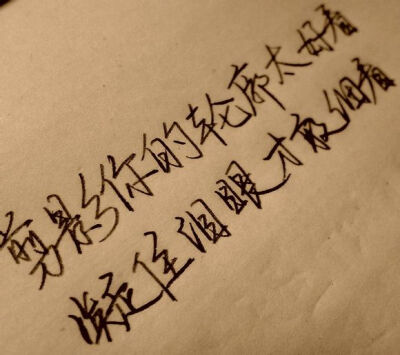 剪影你的轮廓太好看
凝住泪眼才敢细看